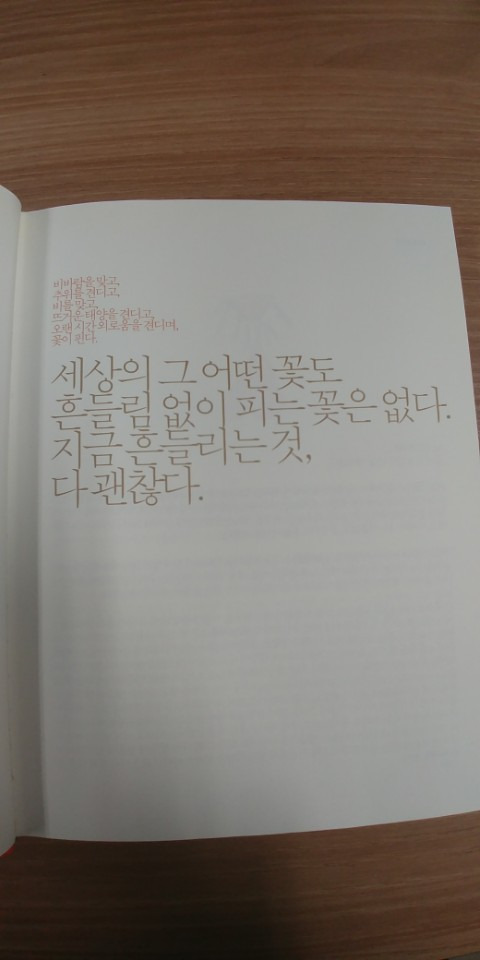 비바람을 맞고,
추위를 견디고,
비를 맞고,
뜨거운 태양을 견디고,
오랜 시간 외로움을 견디며,
꽃이 핀다.
세상의 그 어떤 꽃도
흔들림 없이 피는 꽃은 없다.
지금 흔들리는 것,
다 괜찮다.